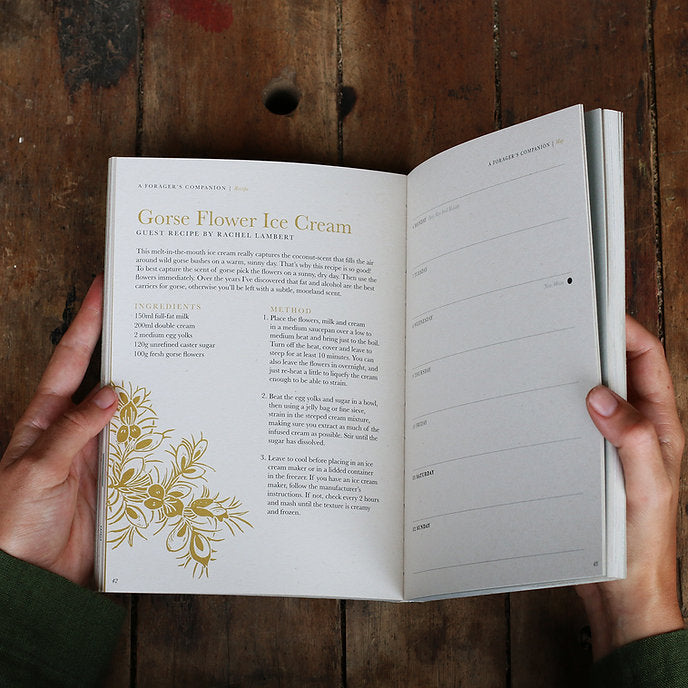 A FORAGER'S COMPANION | Recipe
Gorse Flower Ice Cream
GUEST RECIPE BY RACHEL LAMBERT
This melt-in-the-mouth ice cream really captures the coconut-scent that fills the air
around wild gorse bushes on a warm, sunny day. That's why this recipe is so good!
To best capture the scent of gorse pick the flowers on a sunny, dry day. Then use the
flowers immediately. Over the years I've discovered that fat and alcohol are the best
carriers for gorse, otherwise you'll be left with a subtle, moorland scent.
INGREDIENTS
150ml full-fat milk
200ml double cream
2 medium egg yolks
120g unrefined caster sugar
100g fresh gorse flowers
METHOD
1. Place the flowers, milk and cream
in a medium saucepan over a low to
medium heat and bring just to the boil.
Turn off the heat, cover and leave to
steep for at least 10 minutes. You can
also leave the flowers in overnight, and
just re-heat a little to liquefy the cream
enough to be able to strain.
2. Beat the egg yolks and sugar in a bowl,
then using a jelly bag or fine sieve,
strain in the steeped cream mixture,
making sure you extract as much of the
infused cream as possible. Stir until the
sugar has dissolved.
3. Leave to cool before placing in an ice
cream maker or in a lidded container
in the freezer. If you have an ice cream
maker, follow the manufacturer's
instructions. If not, check every 2 hours
and mash until the texture is creamy
and frozen.
42
A FORAGER'S COMPANION | May
MONDAY
TUESDAY
New Moon
WEDNESDAY
THURSDAY
FRIDAY
SATURDAY
SUNDAY